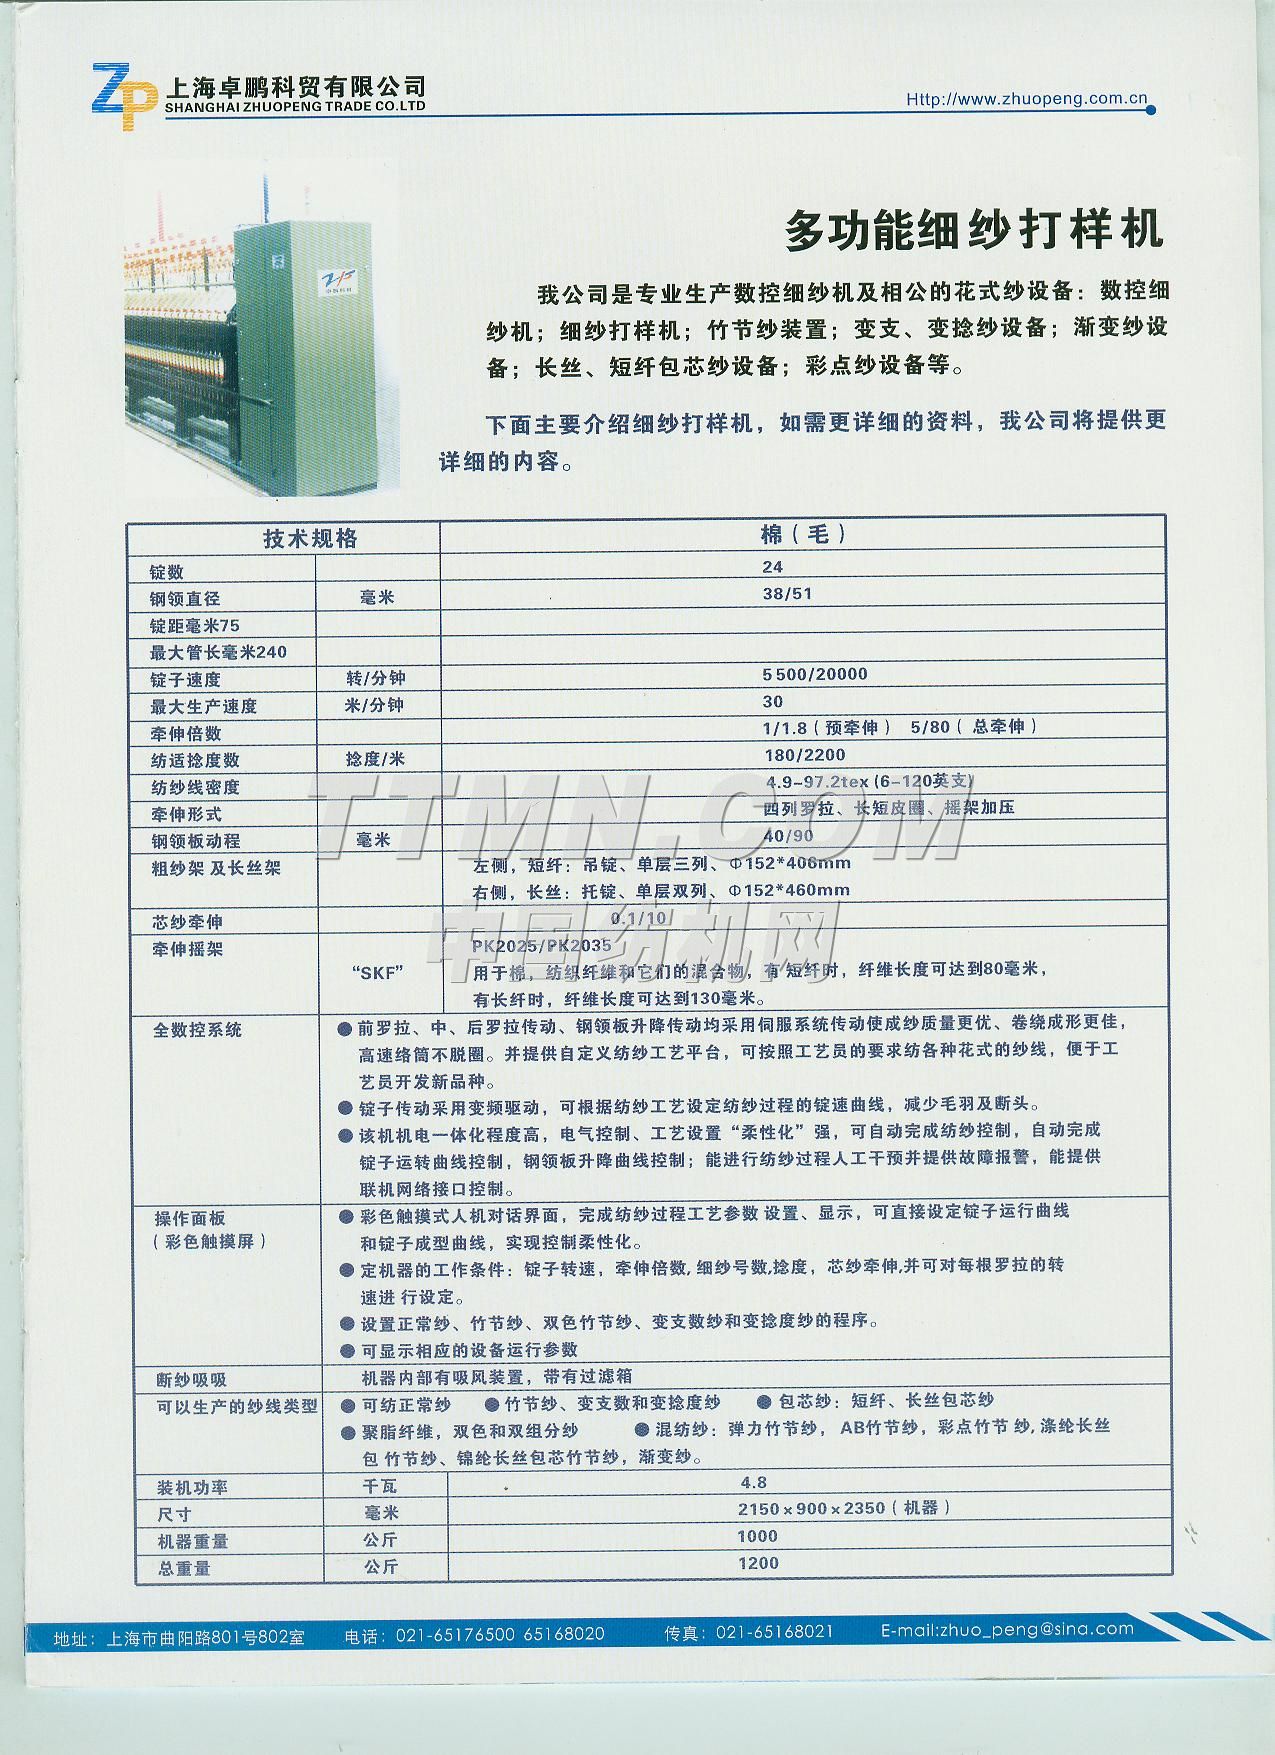 ZP 上海卓鹏科贸有限公司
SHANGHAI ZHUOPENG TRADE CO.LTD
Http://www.zhuopeng.com.cn
多功能细纱打样机
我公司是专业生产数控细纱机及相公的花式纱设备：数控细
纱机；细纱打样机；竹节纱装置；变支、变捻纱设备；渐变纱设
备；长丝、短纤包芯纱设备；彩点纱设备等。
下面主要介绍细纱打样机，如需更详细的资料，我公司将提供更
详细的内容。
技术规格 棉（毛）
锭数 24
钢领直径 毫米 38/51
锭距毫米75
最大管长毫米240
锭子速度 转/分钟 5500/20000
最大生产速度 米/分钟 30
牵伸倍数 1/1.8（预牵伸） 5/80（总牵伸）
纺适捻度数 捻度/米 180/2200
纺纱线密度 4.9-97.2tex (6-120英支)
牵伸形式 四列罗拉、长短皮圈、摇架加压
钢领板动程 毫米 40/90
粗纱架 及长丝架 左侧，短纤：吊锭、单层三列、Φ152*406mm
右侧，长丝：托锭、单层双列、Φ152*460mm
芯纱牵伸 0.1/10
牵伸摇架 “SKF” PK2025/PK2035
用于棉，纺织纤维和它们的混合物，有短纤时，纤维长度可达到80毫米，
有长纤时，纤维长度可达到130毫米。
TTMN.COM
中国纺机网
全数控系统 ●前罗拉、中、后罗拉传动、钢领板升降传动均采用伺服系统传动使成纱质量更优、卷绕成形更佳，
高速络筒不脱圈。并提供自定义纺纱工艺平台，可按照工艺员的要求纺各种花式的纱线，便于工
艺员开发新品种。
●锭子传动采用变频驱动，可根据纺纱工艺设定纺纱过程的锭速曲线，减少毛羽及断头。
●该机机电一体化程度高，电气控制、工艺设置“柔性化”强，可自动完成纺纱控制，自动完成
锭子运转曲线控制，钢领板升降曲线控制；能进行纺纱过程人工干预并提供故障报警，能提供
联机网络接口控制。
操作面板 ●彩色触摸式人机对话界面，完成纺纱过程工艺参数 设置、显示，可直接设定锭子运行曲线
（彩色触摸屏） 和锭子成型曲线，实现控制柔性化。
●定机器的工作条件：锭子转速，牵伸倍数,细纱号数,捻度，芯纱牵伸,并可对每根罗拉的转
速进 行设定。
●设置正常纱、竹节纱、双色竹节纱、变支数纱和变捻度纱的程序。
●可显示相应的设备运行参数
断纱吸吸 机器内部有吸风装置，带有过滤箱
可以生产的纱线类型 ●可纺正常纱 ●竹节纱、变支数和变捻度纱 ●包芯纱：短纤、长丝包芯纱
●聚脂纤维，双色和双组分纱 ●混纺纱：弹力竹节纱，AB竹节纱，彩点竹节纱,涤纶长丝
包 竹节纱、锦纶长丝包芯竹节纱，渐变纱。
装机功率 千瓦 4.8
尺寸 毫米 2150×900×2350（机器）
机器重量 公斤 1000
总重量 公斤 1200
地址：上海市曲阳路801号802室 电话：021-65176500 65168020 传真：021-65168021 E-mail:zhuo_peng@sina.com